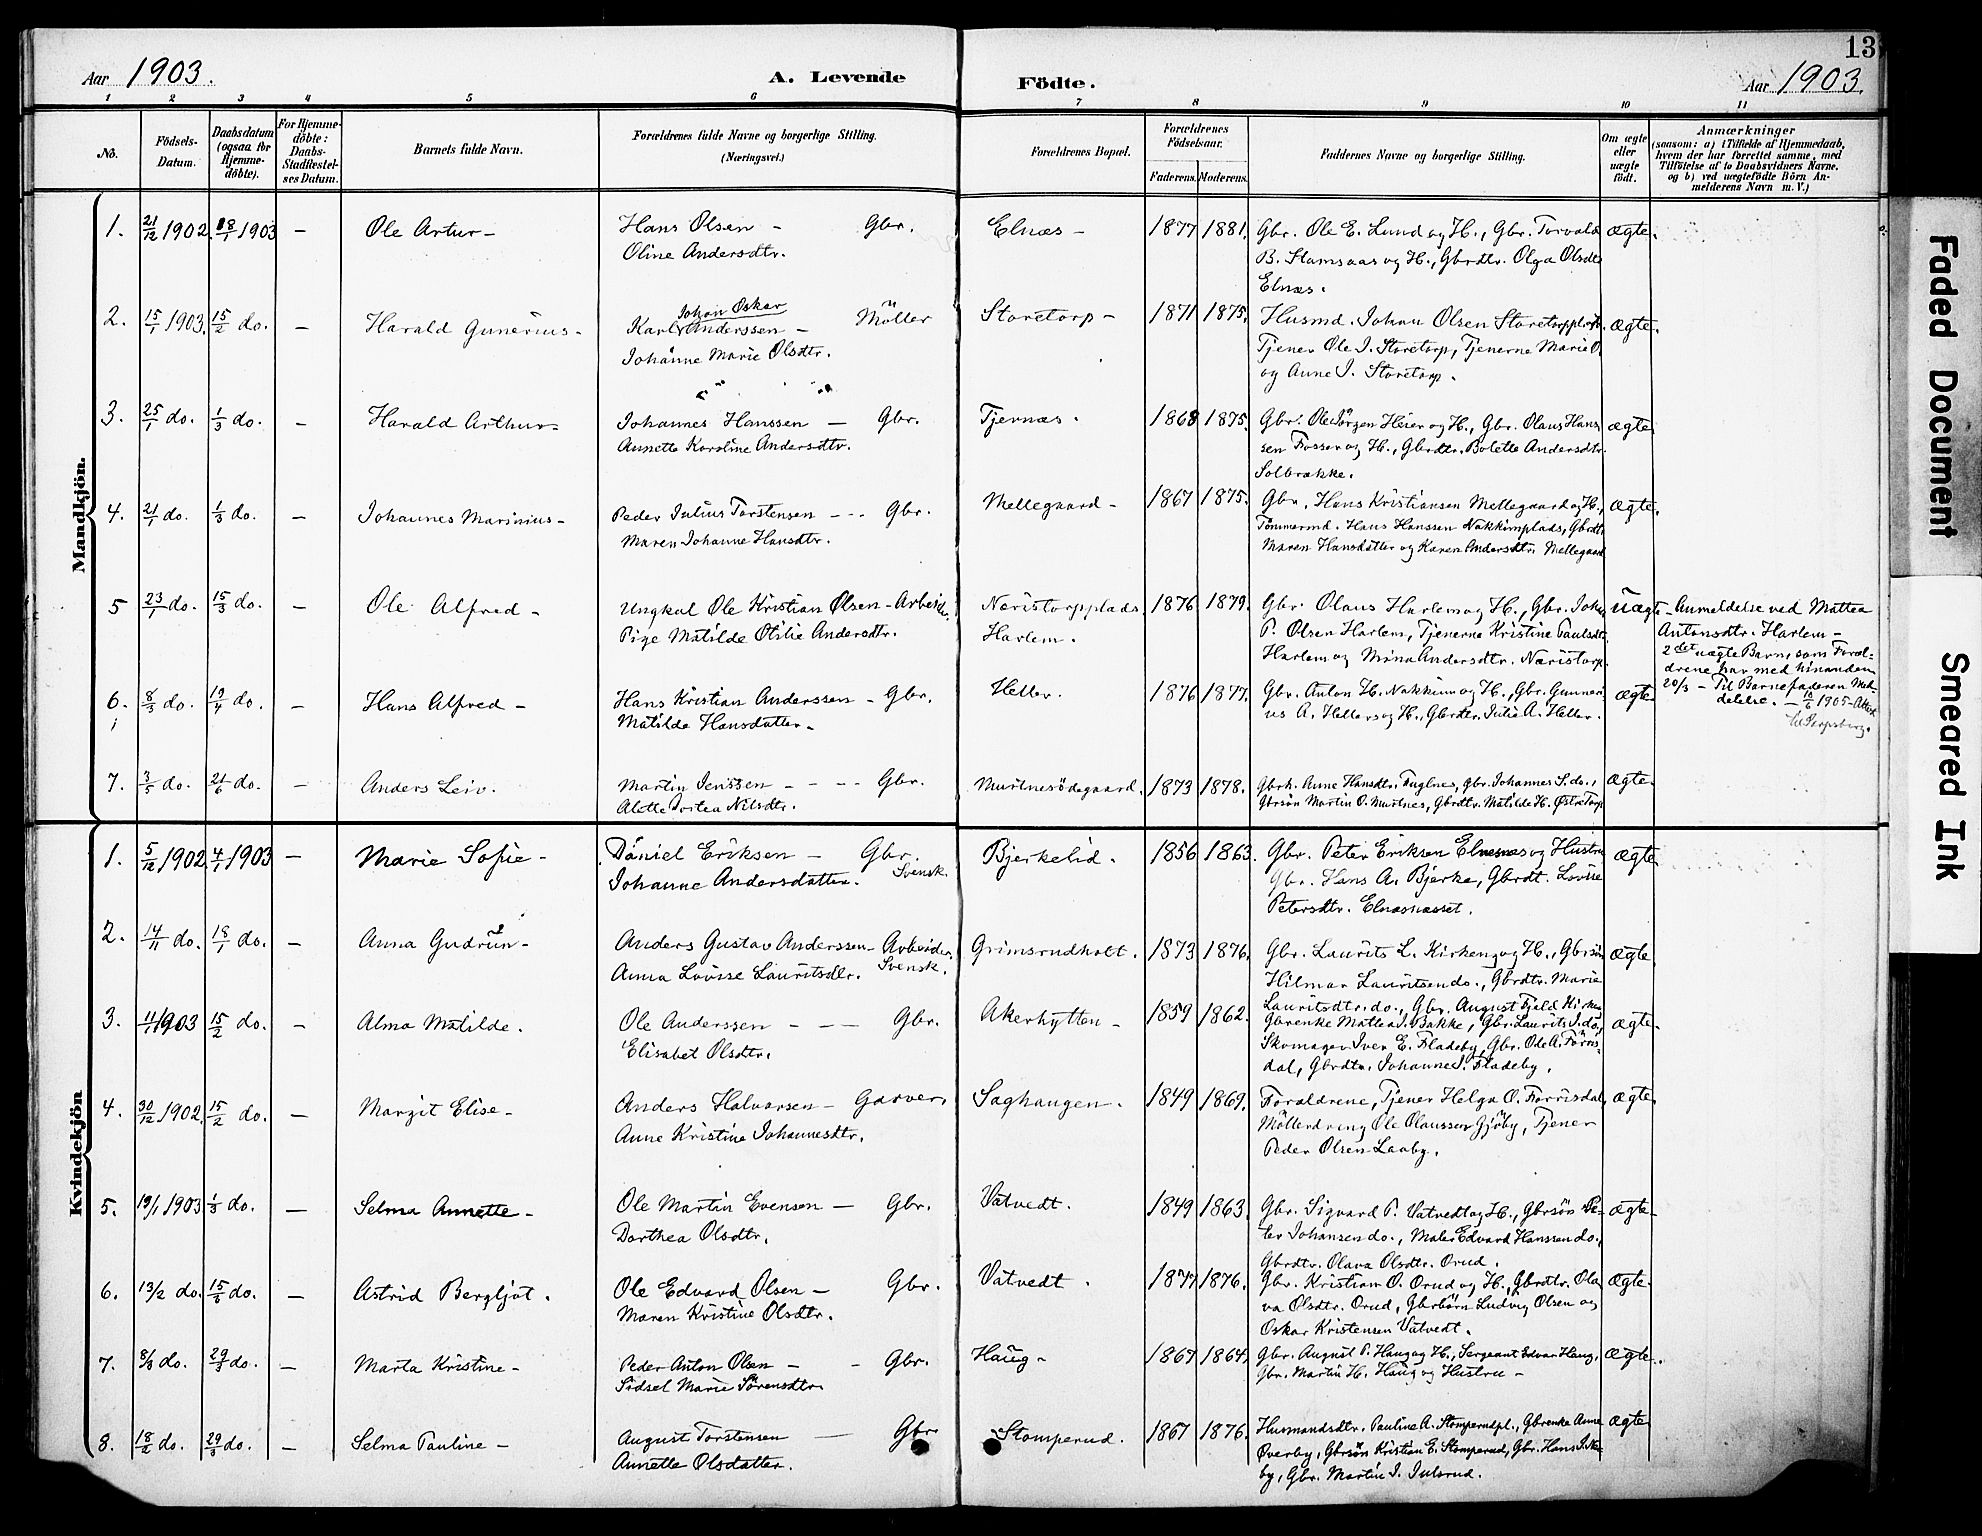 13
Aar 1903.
A. Levende
Födte.
Aar 1903.
1 2 3 4 5 6 7 8 9 10 11
No.
Födsels-Datum.
Daabsdatum (ogsaa for Hjemme-döbte).
For Hjemme-döbte: Daabs-Stadfæstel-ses Datum.
Barnets fulde Navn.
Forældrenes fulde Navne og borgerlige Stilling. (Næringsvei.)
Forældrenes Bopæl.
Forældrenes Födselsaar.
Faderens. Moderens.
Faddernes Navne og borgerlige Stilling.
Om ægte eller uægte födt.
Anmærkninger
(saasom: a) i Tilfælde af Hjemmedaab, hvem der har forrettet samme, med Tilföielse af to Daabsvidners Navne. og b) ved uægtefödte Börn An-melderens Navn m. V.)
Mandkjön.
1. 21/12 1902 18/1 1903 – Ole Artur – Hans Olsen – Gbr. Elnæs – 1877 1881. Gbr. Ole E. Lund og H., Gbr. Torvald ægte.
Oline Andersdtr. B. Stamsaas og H., Gbrdtr. Olga Olsdtr
Elnæs.
2. 15/1 1903. 15/2 do. – Harald Gunerius – Karl Johan Oskar Anderssen – Möller Storetorp – 1871 1875. Husmd. Johan Olsen Storetorppl. ægte.
Johanne Marie Olsdtr. Tjener Ole J. Storetorp, Tjenerne Marie O.
og Anne J. Storetorp.
3. 25/1 do. 1/3 do. – Harald Arthur – Johannes Hanssen – Gbr. Tjernæs. 1868 1875. Gbr. Ole Jörgen Heier og H., Gbr. Olaus Hans ægte
Annette Karoline Andersdtr. sen Fosser og H., Gbrdtr. Bolette Andersdtr.
Solbrække.
4. 21/1 do. 1/3 do. – Johannes Marinius – Peder Julius Torstensen – Gbr. Mellegaard – 1867 1875. Gbr. Hans Kristiansen Mellegaard og H., ægte.
Maren Johanne Hansdtr. Tömmermd. Hans Hanssen Nakkimplads, Gbrdtr.
Maren Hansdatter og Karen Andersdtr. Mellegaard
5 23/1 do. 15/3 do. – Ole Alfred – Ungkal Ole Kristian Olsen – Arbeider. Næristorpplads 1876 1879. Gbr. Olaus Harlem og H., Gbr. Johan uægte – Anmeldelse ved Mattea
Pige Matilde Otilie Andersdtr. Harlem. P. Olsen Harlem, Tjenerne Kristine Paulsdtr. Antonsdtr. Harlem –
Harlem og Mina Andersdtr. Næristorp. 2det uægte Barn, som Foræl-
drene har med hinanden
6. 8/3 do. 19/4 do. – Hans Alfred – Hans Kristian Anderssen – Gbr. Heller. 1876 1877. Gbr. Anton H. Nakkim og H., Gbr. Gunner- ægte 20/3 – Til Barnefaderen Med-
Matilde Hansdatter – us A. Heller og H., Gbrdtr. Julie A. Heller. delelse. – 10/6 1905 – Attest
til Sarpsborg.
7. 3/5 do. 21/6 do. – Anders Leiv. Martin Jenssen – Gbr. Murtnesödegaard. 1873 1878. Gbrk. Anne Hansdtr. Fuglnes, Gbr. Johannes S. do., ægte.
Alette Dortea Nilsdtr. Gbrsön Martin O. Murtnes, Gbrdtr. Matilde H. Østre Torp
Kvindekjön
1. 5/12 1902 4/1 1903 – Marie Sofie – Daniel Eriksen – Gbr. Bjerkelid. 1856 1863. Gbr. Peter Eriksen Elnesnæs og Hustru ægte
Johanne Andersdatter. Svensk. Gbr. Hans A. Bjerke, Gbrdt. Lovise
Petersdtr. Elnæsnæsset.
2. 14/11 do. 18/1 do. – Anna Gudrun – Anders Gustav Anderssen – Arbeider. Grimsrudholt. 1873 1876. Gbr. Laurits L. Kirkeng og H., Gbrsön ægte.
Anna Lovisse Lauritsdtr. Svensk. Hilmar Lauritsen do., Gbrdtr. Marie
Lauritsdtr. do., Gbr. August Fjeld Kirkeng
3. 11/1 1903 15/2 do. – Alma Matilde. Ole Anderssen – Gbr. Akerhytten – 1859 1862. Gbrenke Mattea J. Bakke, Gbr. Laurits J. do, ægte.
Elisabet Olsdtr. Skomager Iver E. Fladeby, Gbr. Ole A. Förris-
dal, Gbrdtr. Johanne J. Fladeby.
4. 30/12 1902. 15/2 do. – Margit Elise – Anders Halvorsen – Garver. Saghaugen. 1849 1869. Forældrene, Tjener Helga O. Förrisdal, ægte.
Anne Kristine Johannesdtr. Möllerdreng Ole Olaussen Gjöby, Tjener
Peder Olsen Laaby.
5. 19/1 1903 1/3 do. – Selma Annette – Ole Martin Evensen – Gbr. Vatvedt. 1849 1863. Gbr. Sigvard P. Vatvedt og H., Gbrsön Pe- ægte –
Dorthea Olsdtr. ter Johansen do., Maler Edvard Hanssen do.,
Gbrdtr. Olava Olsdtr. Orud.
6. 13/2 do. 15/3 do. – Astrid Bergljot. Ole Edvard Olsen – Gbr. Vatvedt. 1877 1876. Gbr. Kristian O. Orud og H., Gbrdtr. Ola ægte.
Maren Kristine Olsdtr. va Olsdtr. Orud, Gbrbörn Ludvig Olsen og
Oskar Kristensen Vatvedt.
7. 8/3 do. 29/3 do. – Marta Kristine – Peder Anton Olsen – Gbr. Haug – 1867 1864. Gbr. August P. Haug og H., Sergeant Edvar Haug, ægte.
Sidsel Marie Sörensdtr. Gbr. Martin H. Haug og Hustru –
8. 18/2 do. 29/3 do. – Selma Pauline – August Torstensen – Gbr Stomperud. 1867 1876. Husmandsdtr. Pauline A. Stomperudpl., Gbrenke Anne ægte
Annette Olsdatter. Överby, Gbrsön Kristian E. Stomperud, Gbr. Hans J.
by, Gbr. Martin J. Julsrud.
Faded Document
Smeared Ink